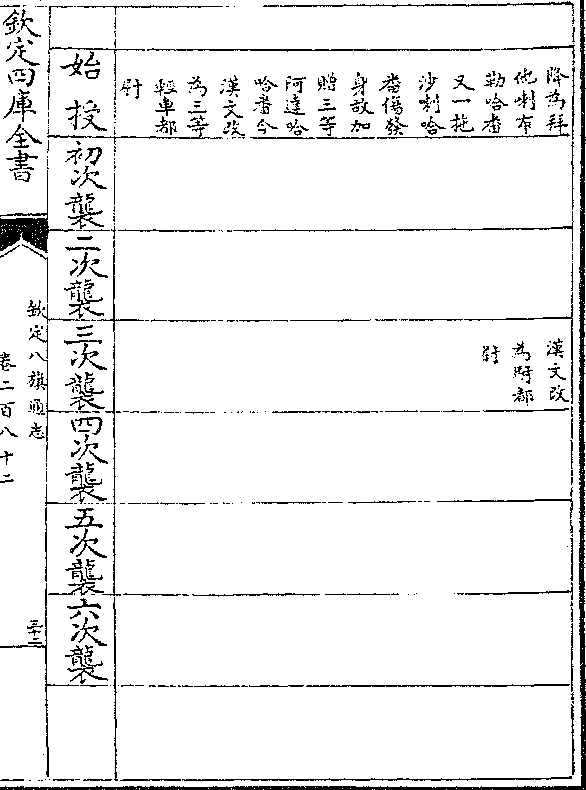 降為拜
他喇布
勒哈番
又一拖
沙喇哈
番傷發
身故加
贈三等
阿達哈
哈番今
漢文改
為三等
輕車都
尉
漢文改
為騎都
尉
始授
初次襲
二次襲
三次襲
四次襲
五次襲
六次襲
欽定四庫全書
欽定八旗通志
卷二百八十二
三十二